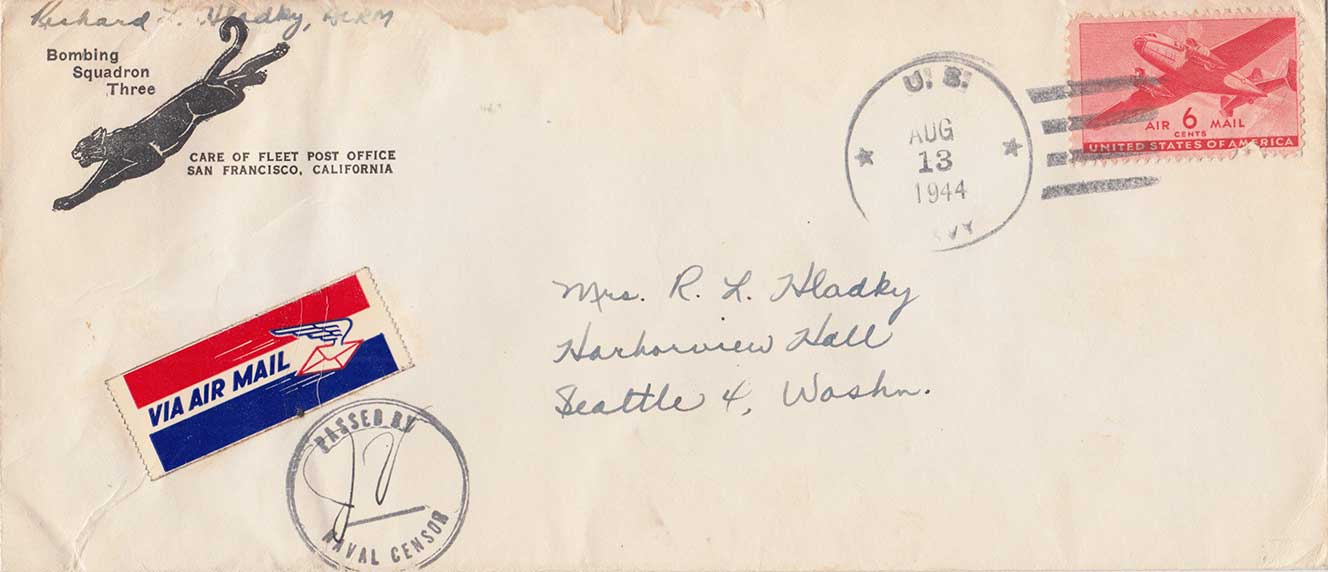 Richard L. Hladky, ACRM
Bombing
Squadron
Three
CARE OF FLEET POST OFFICE
SAN FRANCISCO, CALIFORNIA
U. S.
AUG
13
1944
AIR 6 MAIL
CENTS
UNITED STATES OF AMERICA
Mrs. R. L. Hladky
Harborview Hall
Seattle 4, Washn.
VIA AIR MAIL
PASSED BY
NAVAL CENSOR